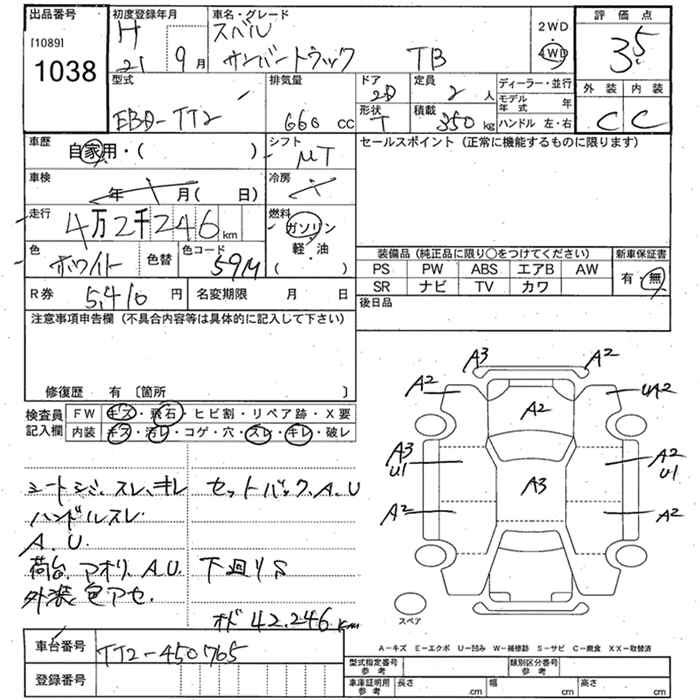 出品番号
[1089]
1038
初度登録年月
H 21 9月
車名・グレード
スバル
サンバートラック TB
2WD
4WD
評価点
3.5
外装 内装
C C
型式
EBD-TT2
排気量
660 cc
ドア
2D
形状
T
定員
2 人
積載
350 kg
ディーラー・並行
モデル年式 年
ハンドル 左・右
車歴
自家用・( )
シフト
MT
セールスポイント(正常に機能するものに限ります)
車検
年 月( 日)
冷房
走行
4万2千246km
燃料
ガソリン
軽・油
( )
色
ホワイト
色替
色コード
59M
装備品(純正品に限り○をつけてください)
新車保証書
PS PW ABS エアB AW
SR ナビ TV カワ
有・無
R券 5,410 円
名変期限 月 日
後日品
注意事項申告欄(不具合内容等は具体的に記入して下さい)
修復歴 有〔箇所 〕
検査員記入欄
FW キズ・飛石・ヒビ割・リペア跡・X要
内装 キズ・汚レ・コゲ・穴・スレ・キレ・破レ
シートシミ、スレ、キレ
ハンドルスレ
A.U.
荷台、アオリ、A.U.
外装色アセ.
セットバック、A.U
下廻りS
オド 42.246 km
A3 A2
A2 UA2
A2
A3 U1 A2 U1
A3
A2 A2
スペア
A-キズ E-エクボ U-凹み W-補修跡 S-サビ C-腐食 XX-取替済
車台番号
TT2-450765
登録番号
型式指定番号 参考
類別区分番号 参考
車庫証明用 参考
長さ cm 幅 cm 高さ cm